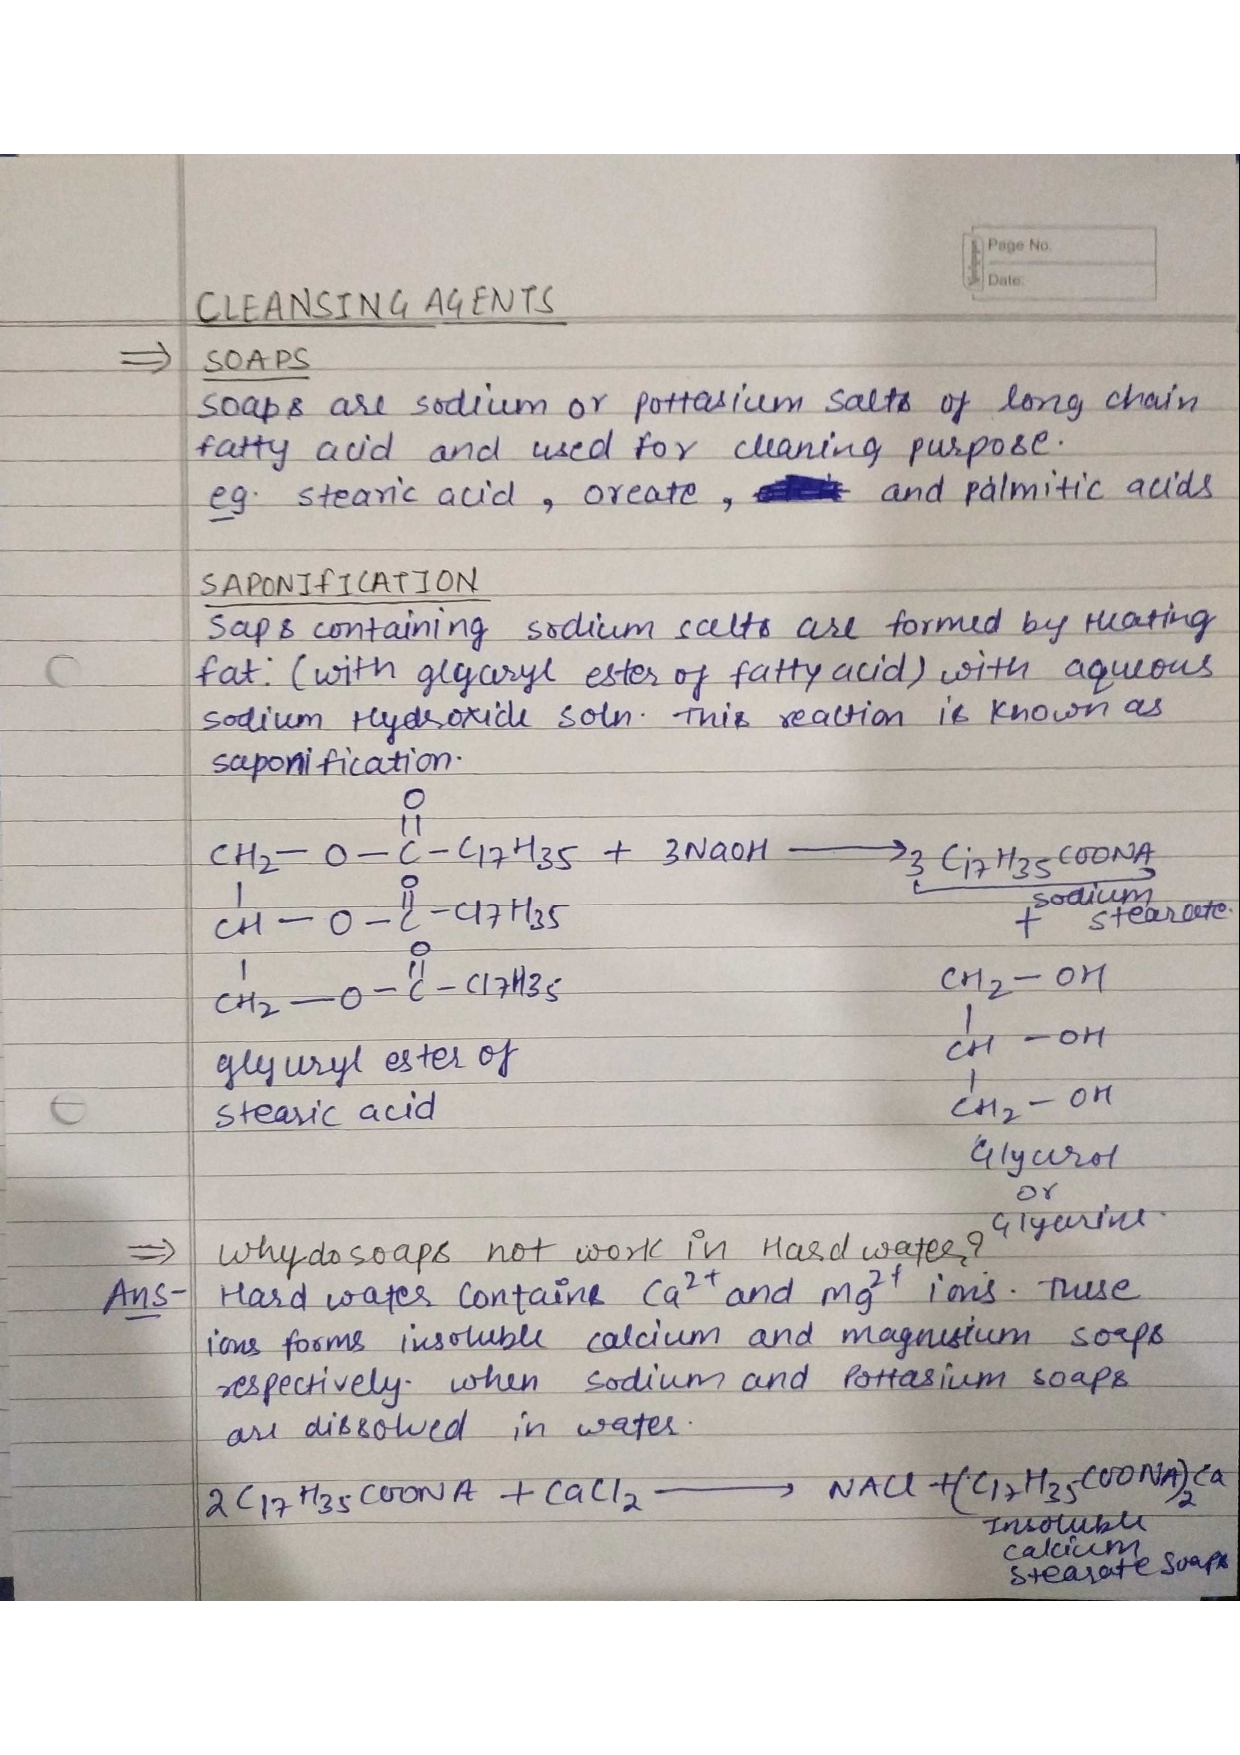 Page No.
Date:
CLEANSING AGENTS
⇒ SOAPS
Soaps are sodium or pottasium salts of long chain
fatty acid and used for cleaning purpose.
eg. stearic acid, oreate, and palmitic acids
SAPONIFICATION
Saps containing sodium salts are formed by Heating
fat. (with glycaryl ester of fatty acid) with aqueous
sodium Hydroxide soln. This reaction is known as
saponification.
O
||
CH2 — O — C — C17H35 + 3NaOH ⟶ 3 C17H35COONA
| O || sodium
CH — O — C — C17H35 + stearate.
| O ||
CH2 — O — C — C17H35 CH2 — OH
|
glyuryl ester of CH — OH
|
stearic acid CH2 — OH
Glycerol
or
Glycerine.
⇒ Why do soaps not work in Hard water?
Ans- Hard water Contains Ca2+ and Mg2+ ions. These
ions forms insoluble calcium and magnesium soaps
respectively. when sodium and Pottasium soaps
are dissolved in water.
2C17H35COONA + CaCl2 ⟶ NACl + (C17H35COONA)2Ca
Insoluble
calcium
stearate Soaps